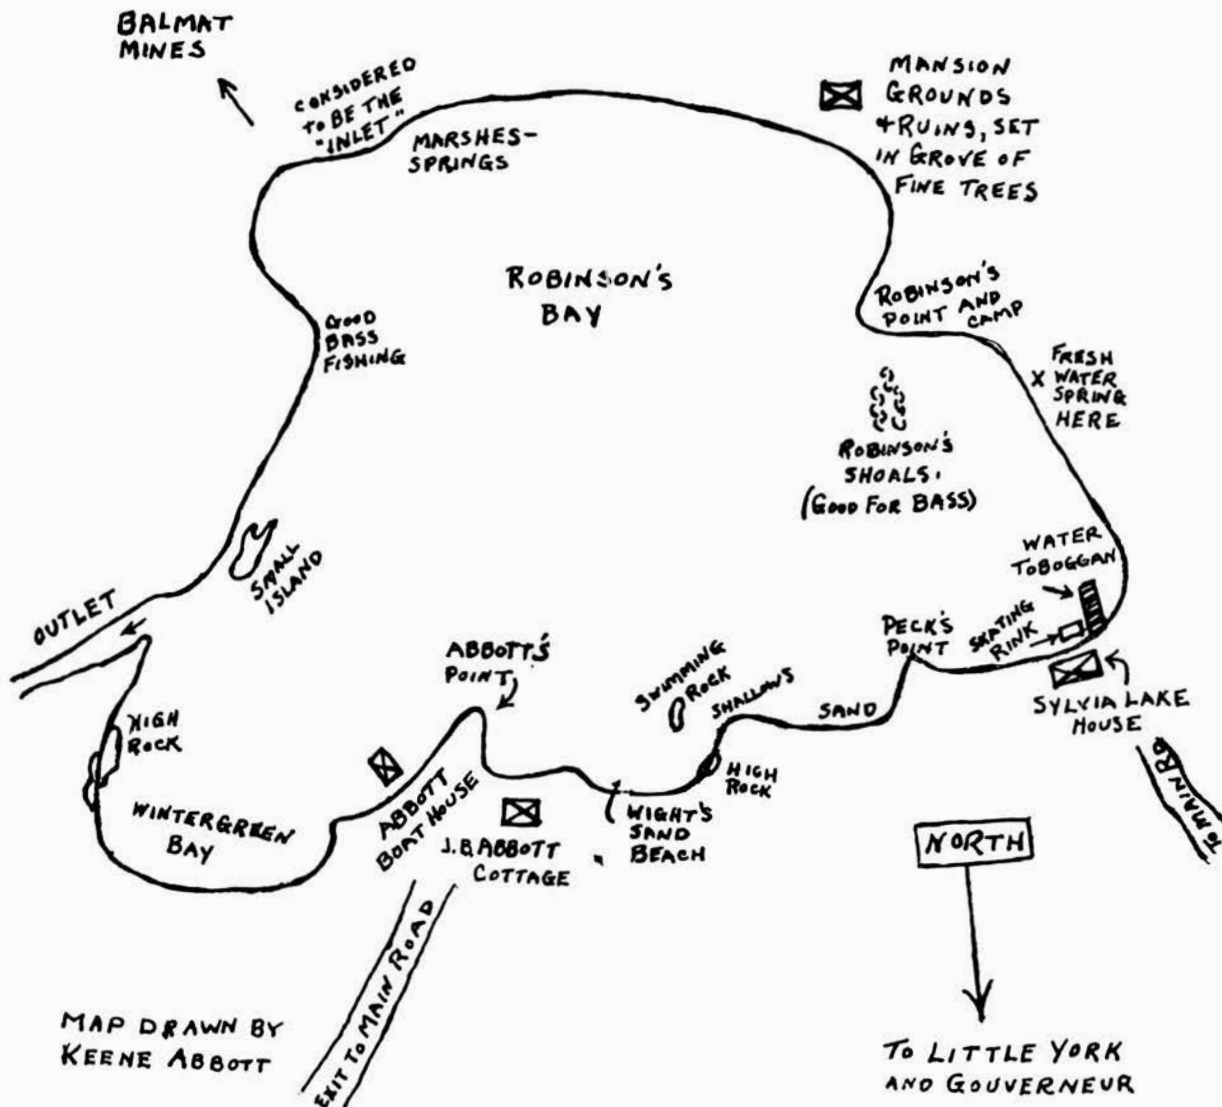 BALMAT
MINES
CONSIDERED
TO BE THE
"INLET"
MARSHES-
SPRINGS
MANSION
GROUNDS
+ RUINS, SET
IN GROVE OF
FINE TREES
ROBINSON'S
BAY
ROBINSON'S
POINT AND
CAMP
GOOD
BASS
FISHING
X FRESH
WATER
SPRING
HERE
ROBINSON'S
SHOALS.
(GOOD FOR BASS)
WATER
TOBOGGAN
SMALL
ISLAND
OUTLET
ABBOTT'S
POINT
SWIMMING
ROCK
SHALLOWS
SAND
PECK'S
POINT
SKATING
RINK
SYLVIA LAKE
HOUSE
TO MAIN RD
HIGH
ROCK
WINTERGREEN
BAY
ABBOTT
BOAT HOUSE
J.B. ABBOTT
COTTAGE
WIGHT'S
SAND
BEACH
HIGH
ROCK
NORTH
EXIT TO MAIN ROAD
MAP DRAWN BY
KEENE ABBOTT
TO LITTLE YORK
AND GOUVERNEUR